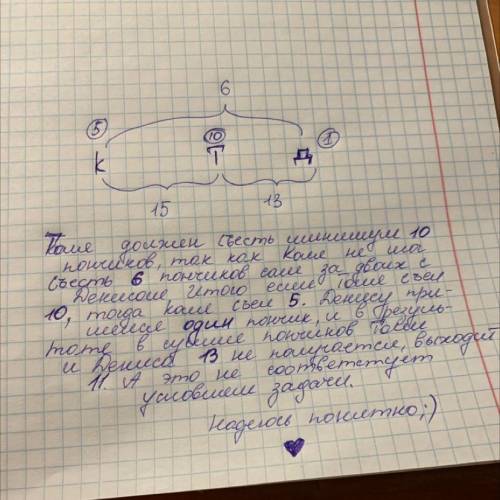 6
5 10 1
К Т Д
15 13
Коля должен съесть минимум 10
пончиков, так как Коля не мог
съесть 6 пончиков сам за двоих с
Денисом Итого если Толя съел
10, тогда Коля съел 5. Денису при-
шелся один пончик, и в резуль-
тате в сумме пончиков Толи
и Дениса 13 не получается, выходит
11. А это не соответстует
условием задачи.
Надеюсь понятно;)